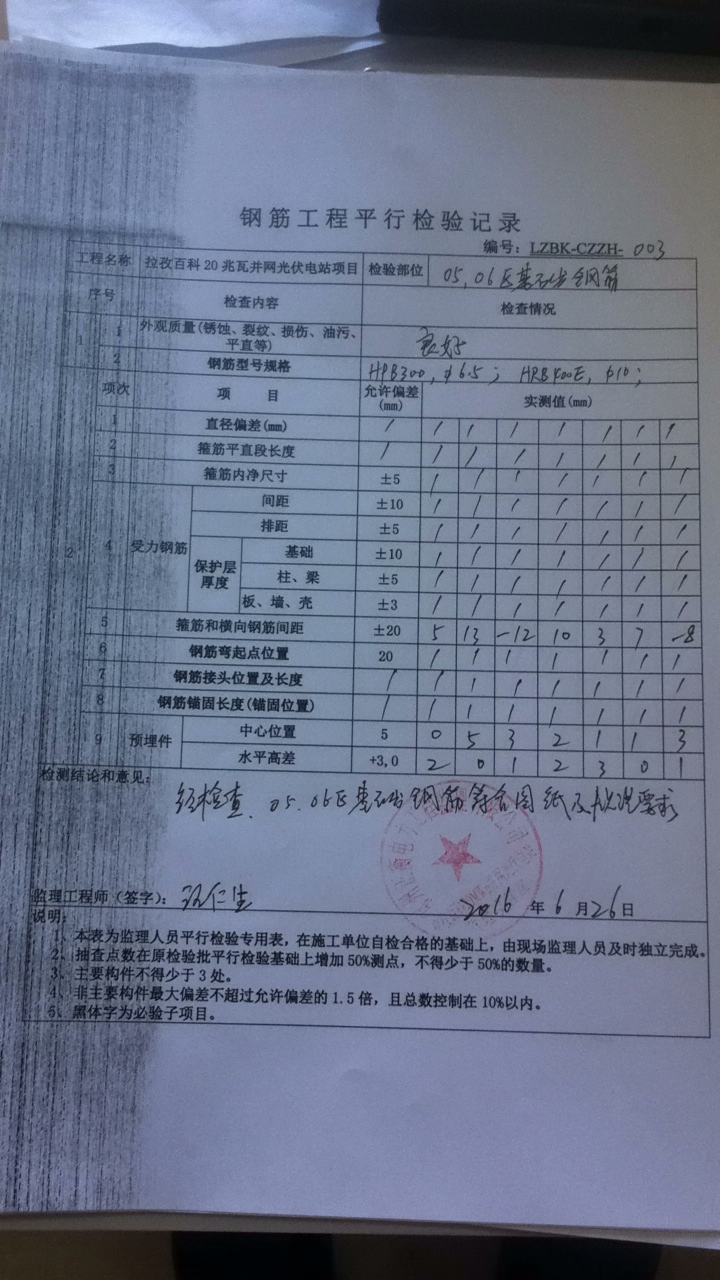 钢筋工程平行检验记录
编号：LZBK-CZZH- 003
工程名称 拉孜百科20兆瓦并网光伏电站项目 检验部位 05,06区基础钢筋
序号 检查内容 检查情况
1 1 外观质量(锈蚀、裂纹、损伤、油污、平直等) 良好
2 钢筋型号规格 HPB300, φ6.5; HRB400E, φ10;
项次 项 目 允许偏差(mm) 实测值(mm)
2 1 直径偏差(mm) / / / / / / / /
2 箍筋平直段长度 / / / / / / / /
3 箍筋内净尺寸 ±5 / / / / / / /
4 受力钢筋 间距 ±10 / / / / / / /
排距 ±5 / / / / / / /
保护层厚度 基础 ±10 / / / / / / /
柱、梁 ±5 / / / / / / /
板、墙、壳 ±3 / / / / / / /
5 箍筋和横向钢筋间距 ±20 5 13 -12 10 3 7 -8
6 钢筋弯起点位置 20 / / / / / / /
7 钢筋接头位置及长度 / / / / / / / /
8 钢筋锚固长度(锚固位置) / / / / / / / /
9 预埋件 中心位置 5 0 5 3 2 1 1 3
水平高差 +3,0 2 0 1 2 3 0 1
检测结论和意见：
经检查、05.06区基础钢筋符合图纸及规范要求
监理工程师（签字）：
2016 年 6 月 26 日
说明：
1、本表为监理人员平行检验专用表，在施工单位自检合格的基础上，由现场监理人员及时独立完成。
2、抽查点数在原检验批平行检验基础上增加50%测点，不得少于50%的数量。
3、主要构件不得少于3处。
4、非主要构件最大偏差不超过允许偏差的1.5倍，且总数控制在10%以内。
5、黑体字为必验子项目。